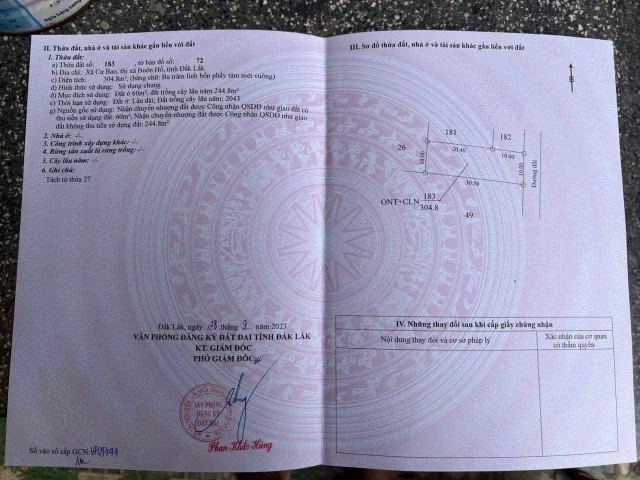 II. Thửa đất, nhà ở và tài sản khác gắn liền với đất
1. Thửa đất:
a) Thửa đất số: 183 , tờ bản đồ số: 72
b) Địa chỉ: Xã Cư Bao, thị xã Buôn Hồ, tỉnh Đắk Lắk
c) Diện tích: 304.8m², (bằng chữ: Ba trăm linh bốn phẩy tám mét vuông)
d) Hình thức sử dụng: Sử dụng chung
đ) Mục đích sử dụng: Đất ở 60m²; đất trồng cây lâu năm 244.8m²
e) Thời hạn sử dụng: Đất ở: Lâu dài; Đất trồng cây lâu năm: 2043
g) Nguồn gốc sử dụng: Nhận chuyển nhượng đất được Công nhận QSDĐ như giao đất có
thu tiền sử dụng đất: 60m²; Nhận chuyển nhượng đất được Công nhận QSDĐ như giao
đất không thu tiền sử dụng đất: 244.8m²
2. Nhà ở: -/-
3. Công trình xây dựng khác: -/-
4. Rừng sản xuất là rừng trồng: -/-
5. Cây lâu năm: -/-
6. Ghi chú:
Tách từ thửa 27
Đắk Lắk, ngày 28 tháng 2 năm 2023
VĂN PHÒNG ĐĂNG KÝ ĐẤT ĐAI TỈNH ĐẮK LẮK
KT. GIÁM ĐỐC
PHÓ GIÁM ĐỐC
VĂN PHÒNG
ĐĂNG KÝ
ĐẤT ĐAI
Phan Khắc Hùng
Số vào sổ cấp GCN:
III. Sơ đồ thửa đất, nhà ở và tài sản khác gắn liền với đất
B
181
182
26
20.40
10.00
10.00
10.00
30.38
Đường đất
183
ONT+CLN
304.8
49
IV. Những thay đổi sau khi cấp giấy chứng nhận
Nội dung thay đổi và cơ sở pháp lý
Xác nhận của cơ quan
có thẩm quyền